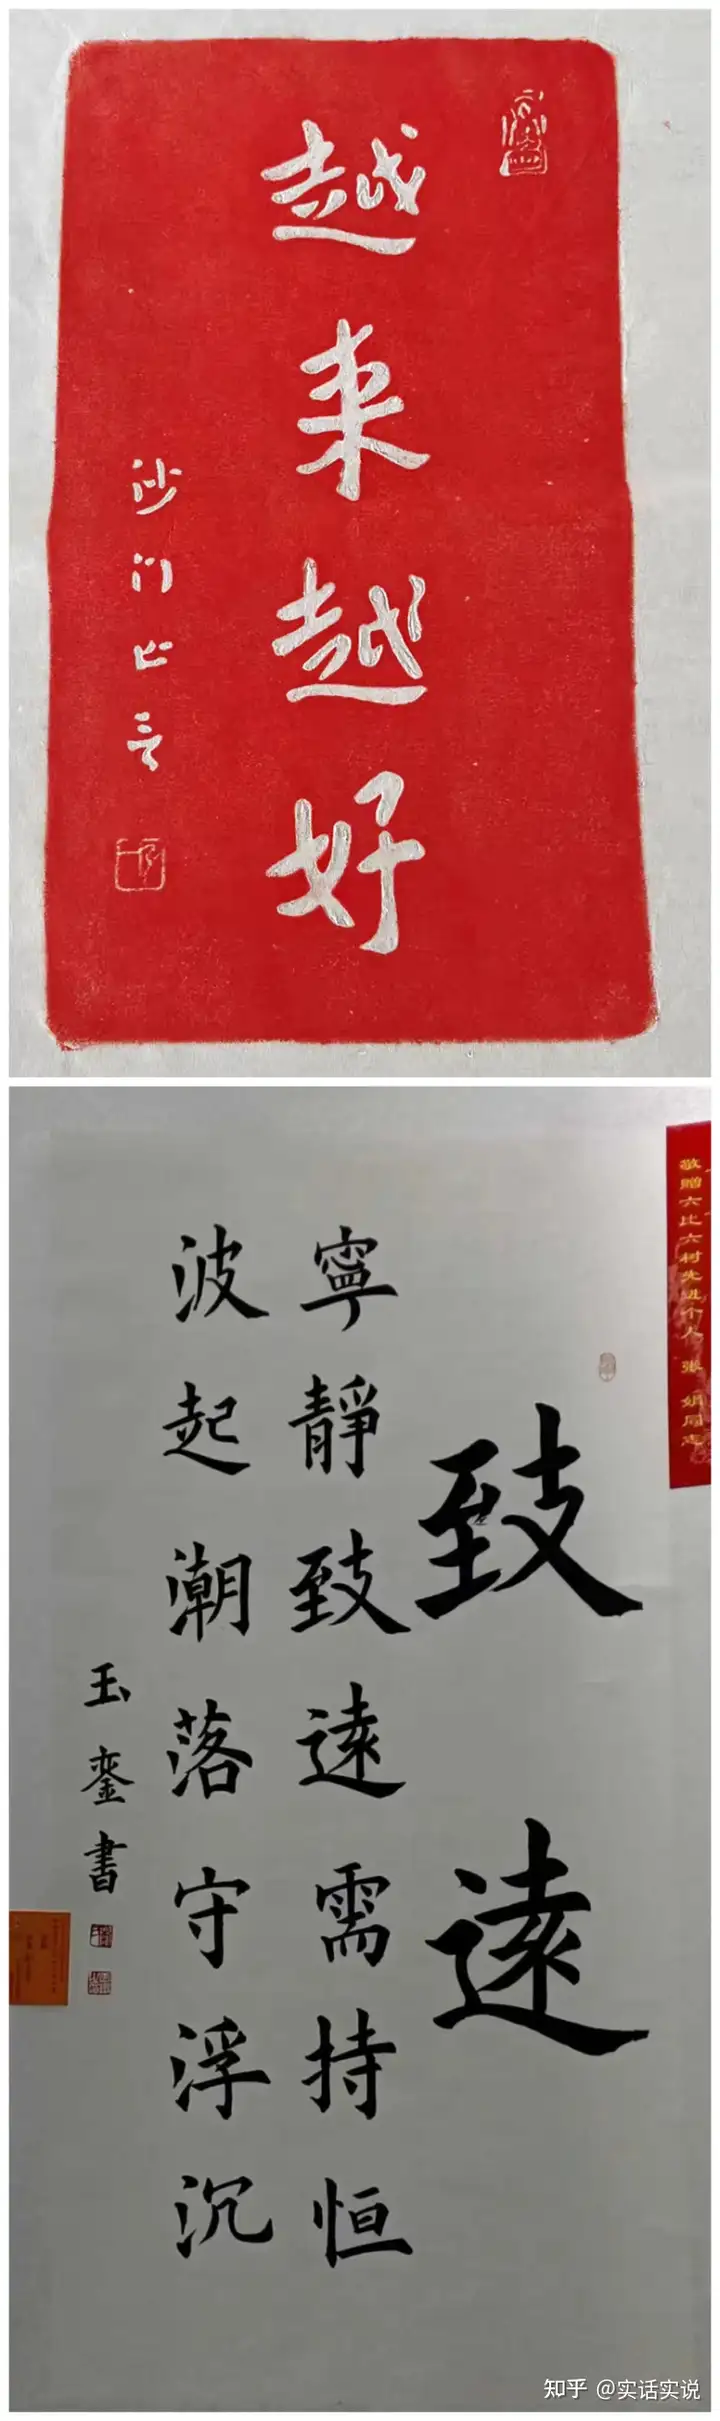 越来越好
沙门心言
致遠
寧靜致遠需持恒
波起潮落守浮沉
玉銮書
敬赠六比六树先进个人 张 娟同志
知乎 @实话实说